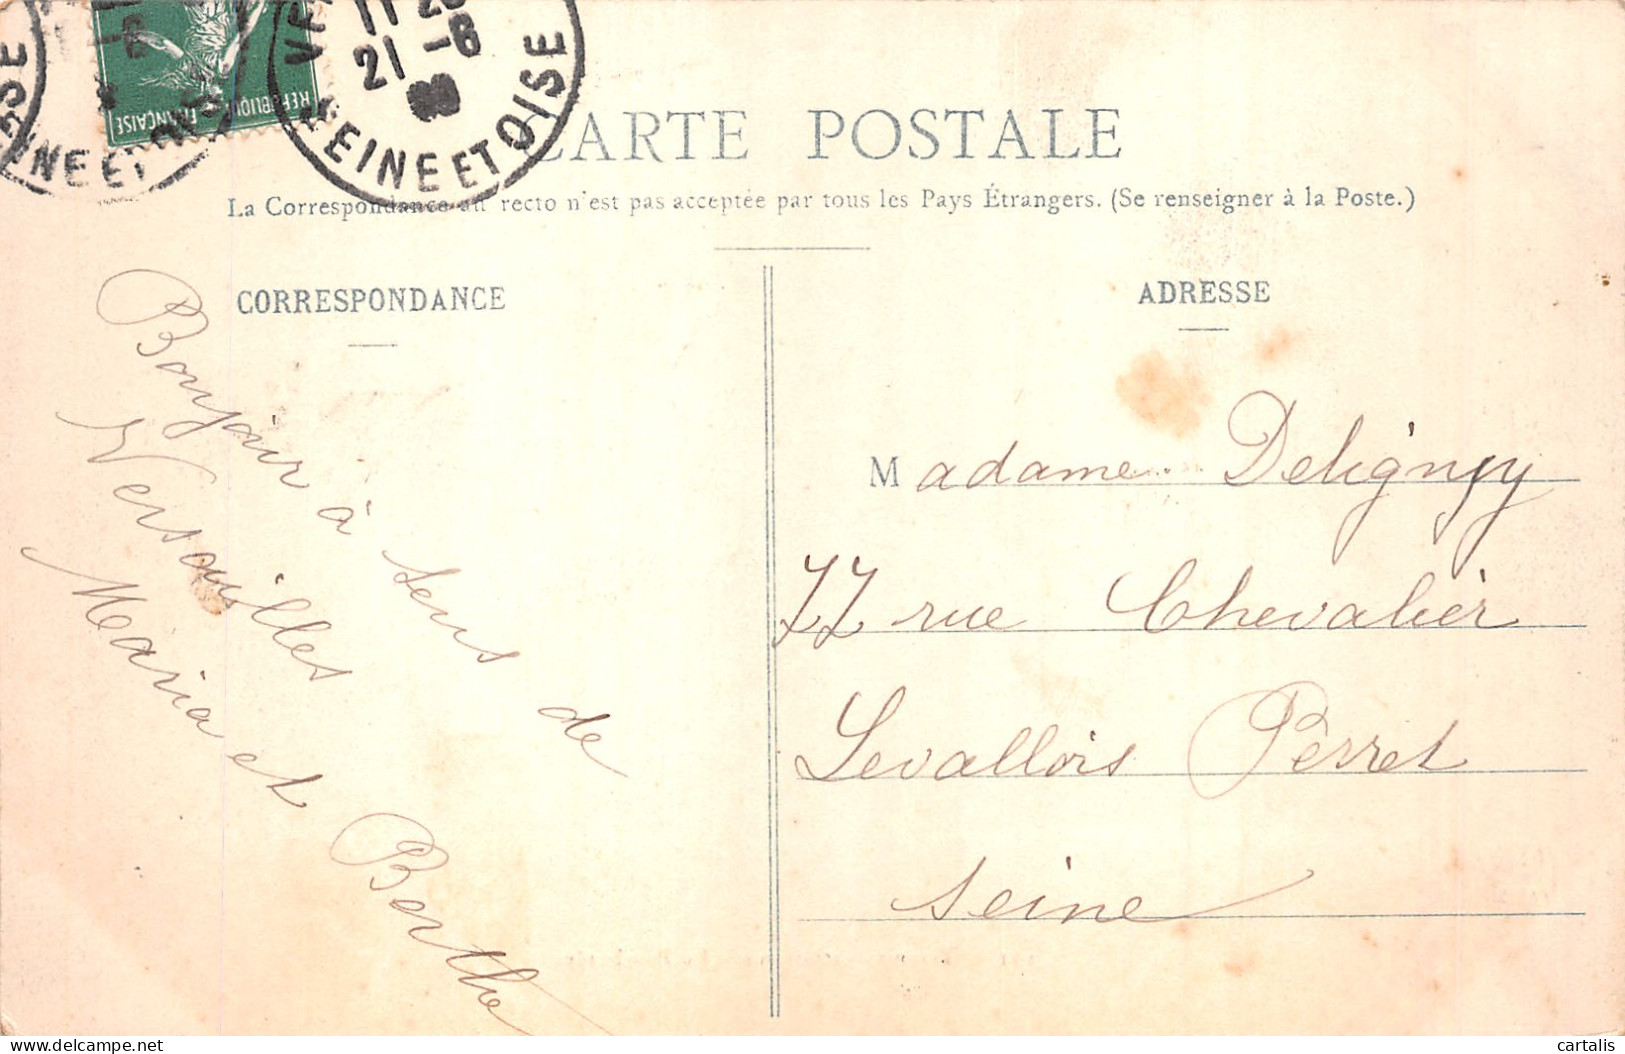 RÉPUBLIQUE FRANÇAISE
21 -8
SEINE ET OISE
CARTE POSTALE
La Correspondance au recto n'est pas acceptée par tous les Pays Étrangers. (Se renseigner à la Poste.)
CORRESPONDANCE
Bonjour à tous de
Versailles
Maria et Berthe
ADRESSE
Madame Deligny
77 rue Chevalier
Levallois Perret
Seine
cartalis
delcampe.net